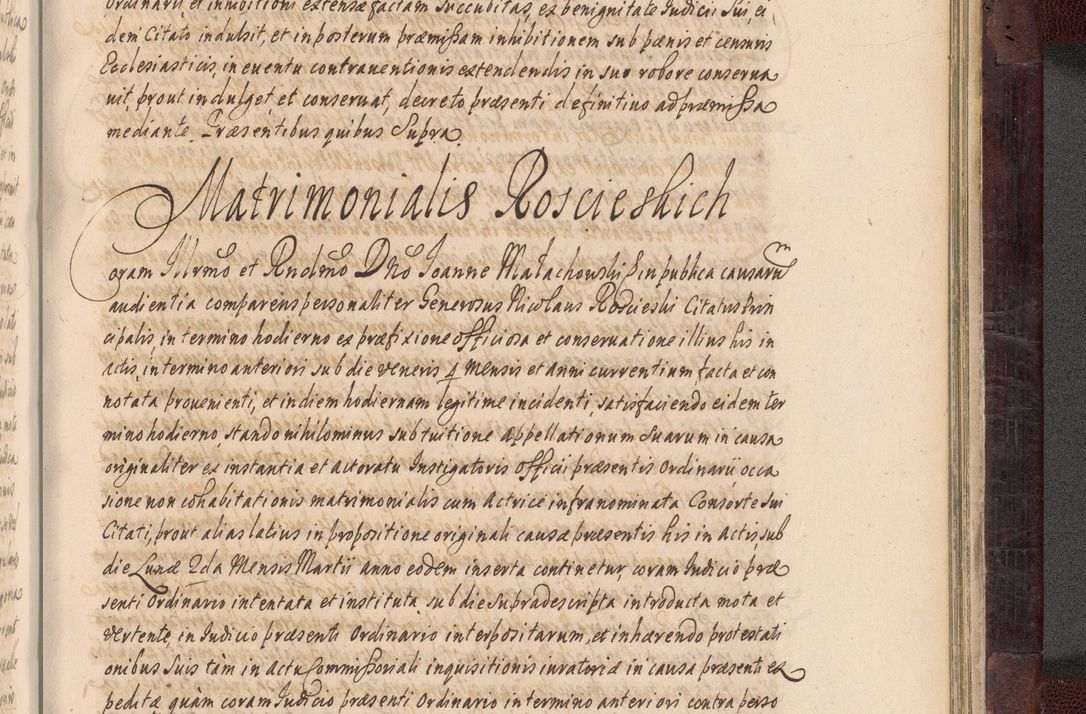 Ordinarii et inhibitioni extensæ factam succubitas, ex benignitate Iudicii sui, ei
dem Citato indulsit, et in posterum præmissam inhibitionem sub pænis et censuris
Ecclesiasticis, in eventu contraventionis extendendis in suo robore conserva
vit, prout indulget, et conservat, decreto præsenti definitivo ad præmissa
mediante. Præsentibus quibus supra.
Matrimonialis Roscieskich
Coram Illrmo et Rndmo Dno Ioanne Małachowski in publica causarum
audientia comparens personaliter Generosus Nicolaus Roscieski Citatus Prin
cipalis, in termino hodierno ex præfixione officiosa et conservatione illius his in
actis, in termino anteriori sub die veneris 4 Mensis et Anni currentium facta et con
notata provenienti, et in diem hodiernam legitime incidenti, satisfaciendo eidem ter
mino hodierno, stando nihilominus sub tuitione Appellationum suarum in causa
originaliter ex instantia et actoratu Instigatoris Officii præsentis Ordinarii occa
sione non cohabitationis matrimonialis cum Actrice infranominata Consorte sui
Citati, prout alias latius in propositione originali causæ præsentis his in Actis, sub
die Lunæ 2da Mensis Martii anno eodem inserta continetur, coram Iudicio præ
senti Ordinario intentata et instituta, sub die supradescripta introducta mota et
vertente, in Iudicio præsenti Ordinario interpositarum, et inhærendo protestati
onibus suis tàm in actu Commissoriali inquisitionis iuratoriæ in causa præsenti ex
peditæ quàm coram Iudicio præsenti Ordinario in termino anteriori contra perso